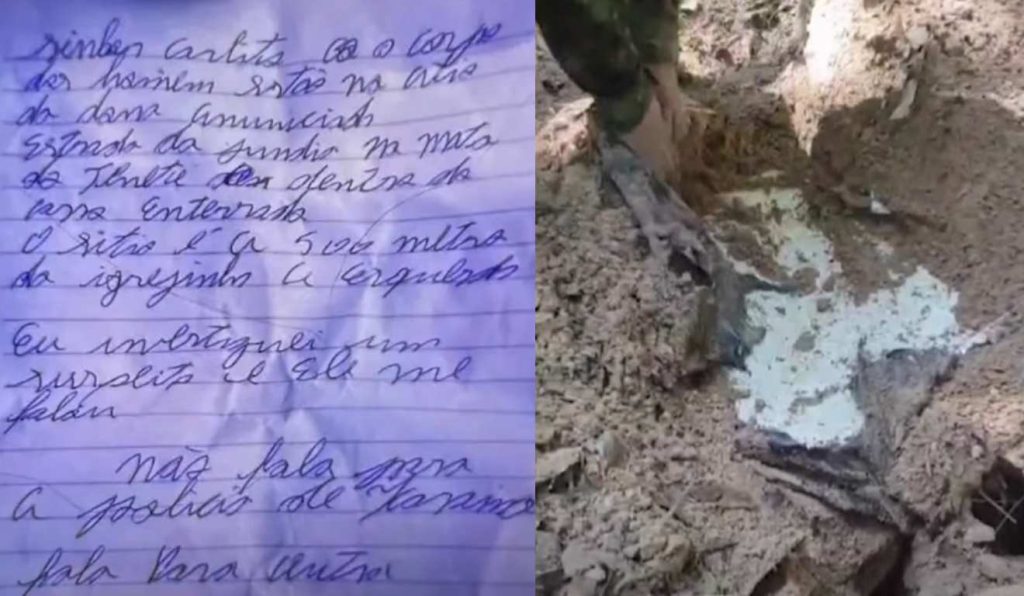 carlito o corpo
dos homem estão no citio
da dona anunciada
Estrada da jundia na mata
do Tenete dentra da
carro Enterrado
O sitio é a 500 metro
da igrejinha a Esquerda
Eu investiguei um
suspeito e Ele me
falou
não fala para
a policia de
fala Para outra